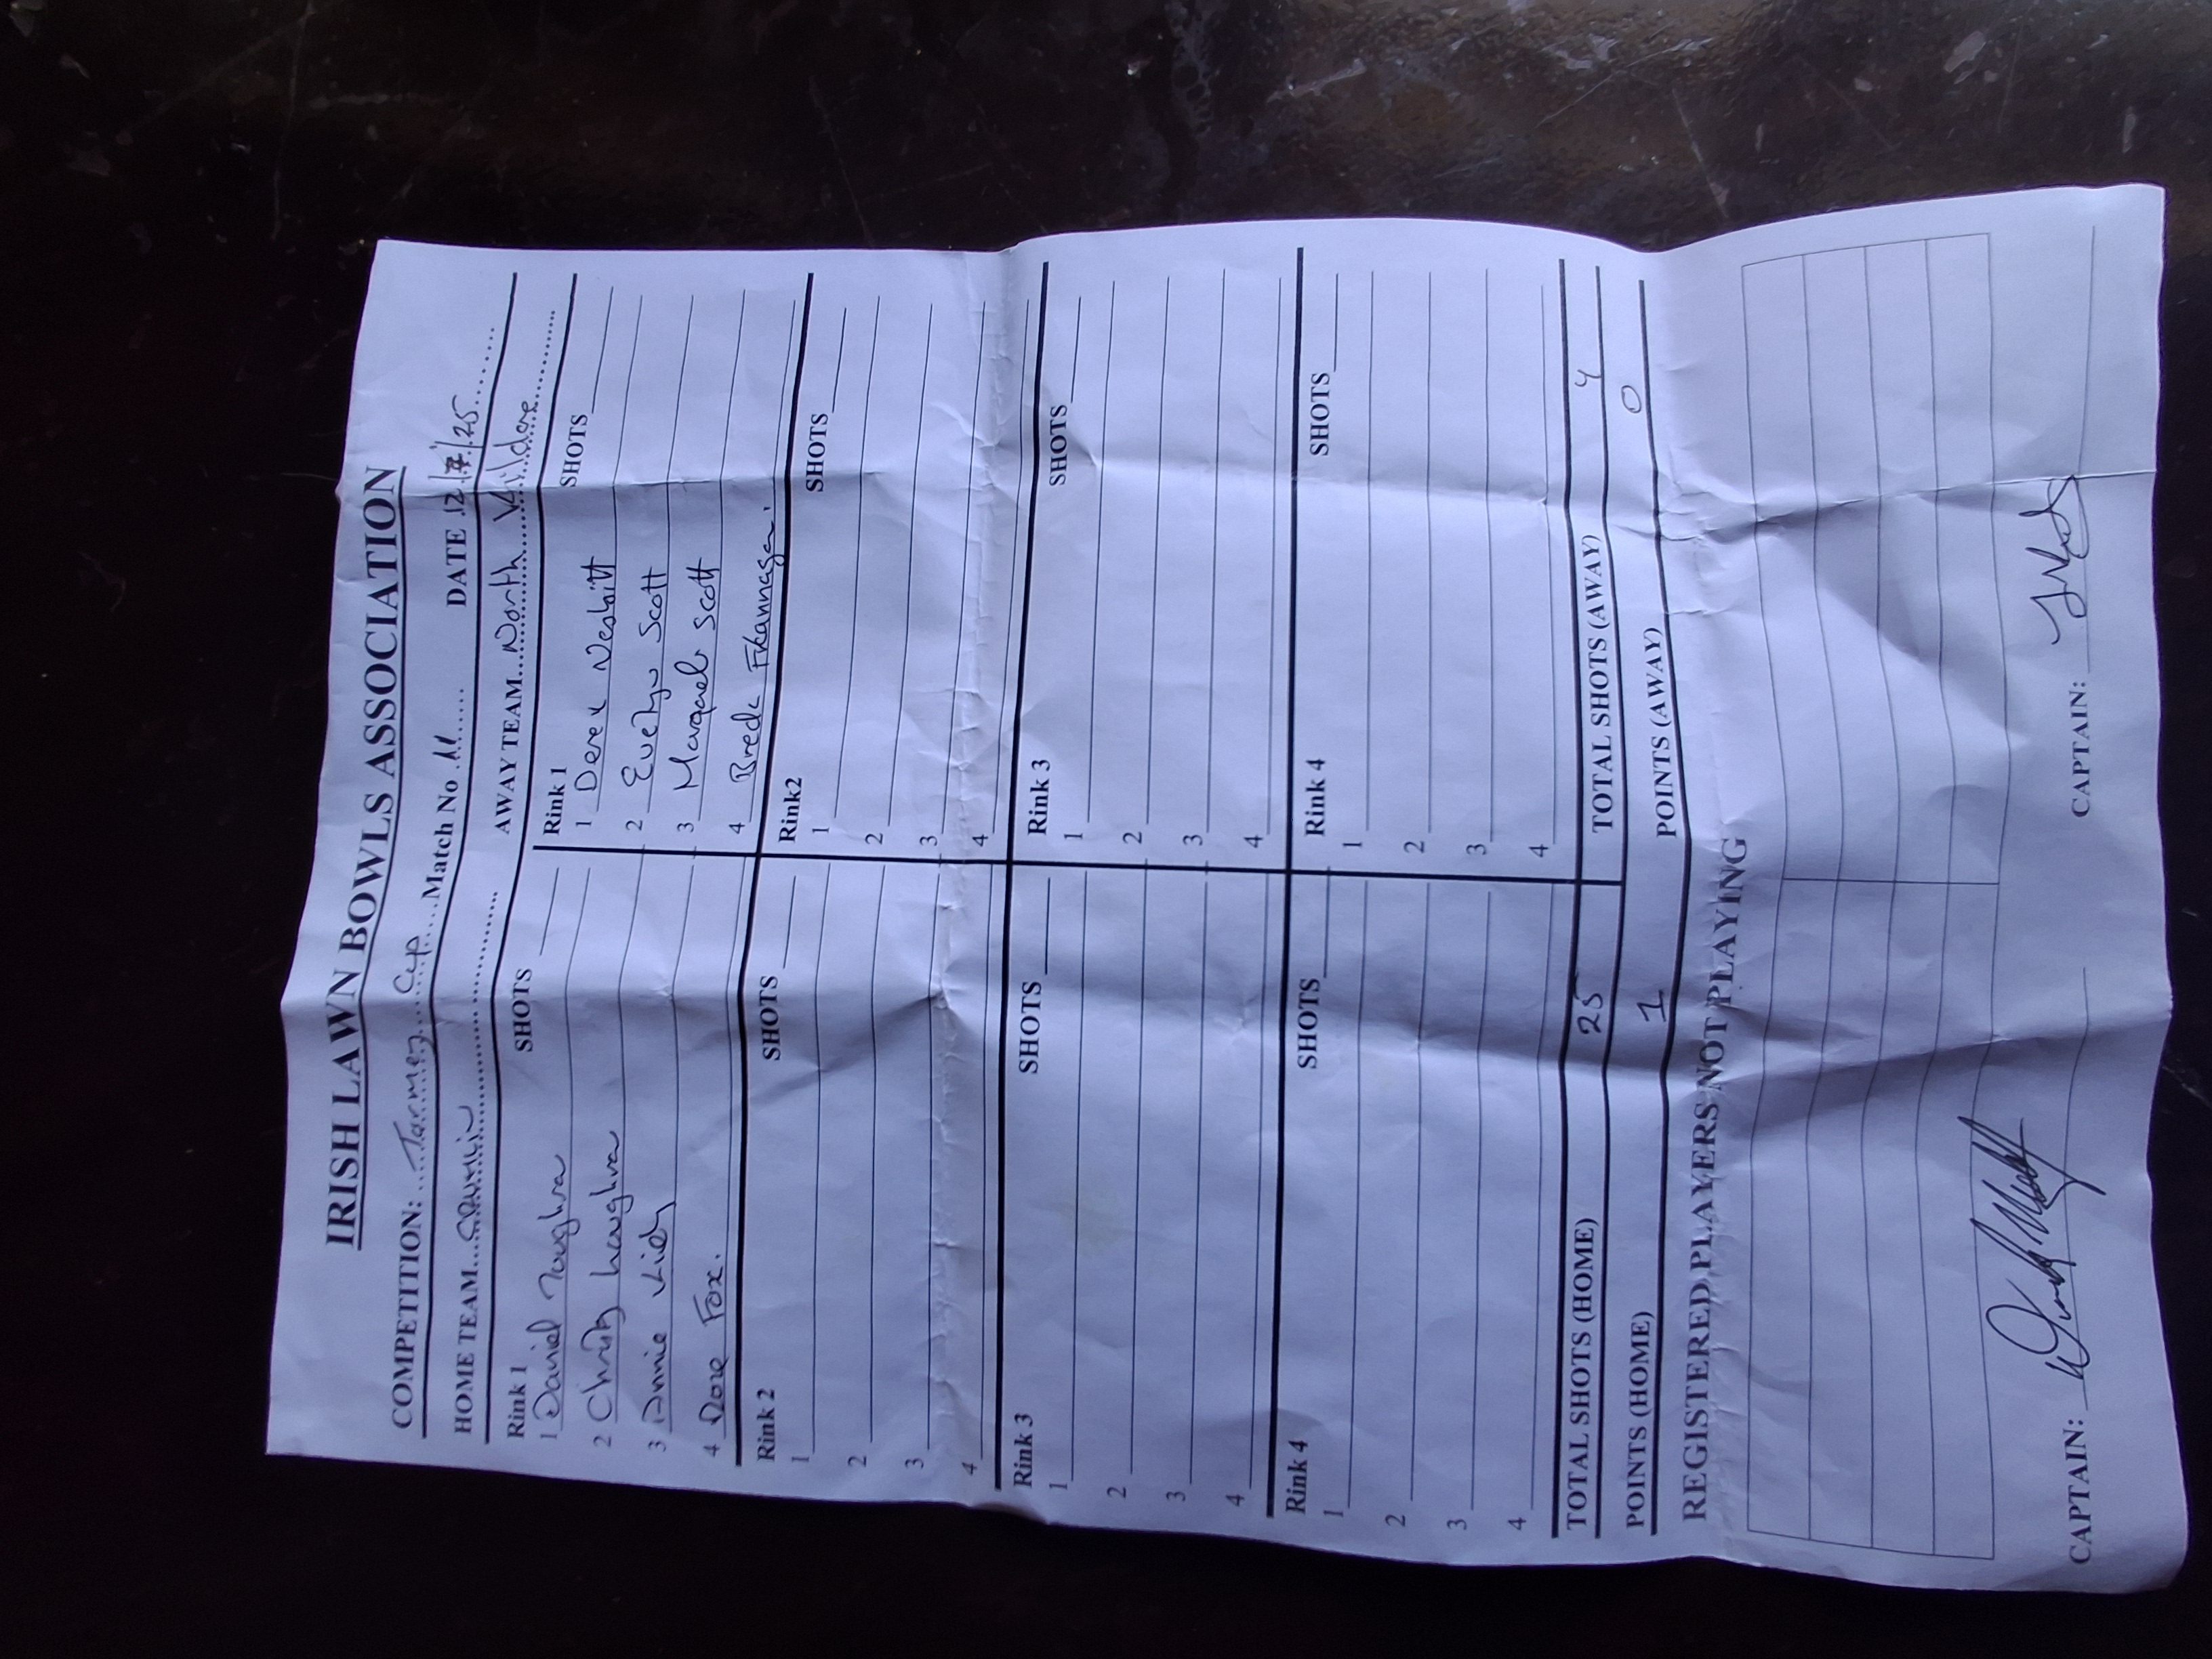 IRISH LAWN BOWLS ASSOCIATION
COMPETITION: Tarmey Cup Match No 11 DATE 12/7/25
HOME TEAM AWAY TEAM North Kildare
Rink 1 SHOTS Rink 1 SHOTS
1 Daniel 1 Derek Nesbitt
2 Christy 2 Evelyn Scott
3 3 Margaret Scott
4 Fox. 4 Breda
Rink 2 SHOTS Rink2 SHOTS
1 1
2 2
3 3
4 4
Rink 3 SHOTS Rink 3 SHOTS
1 1
2 2
3 3
4 4
Rink 4 SHOTS Rink 4 SHOTS
1 1
2 2
3 3
4 4
TOTAL SHOTS (HOME) 25 TOTAL SHOTS (AWAY) 4
POINTS (HOME) 1 POINTS (AWAY) 0
REGISTERED PLAYERS NOT PLAYING
CAPTAIN: CAPTAIN: